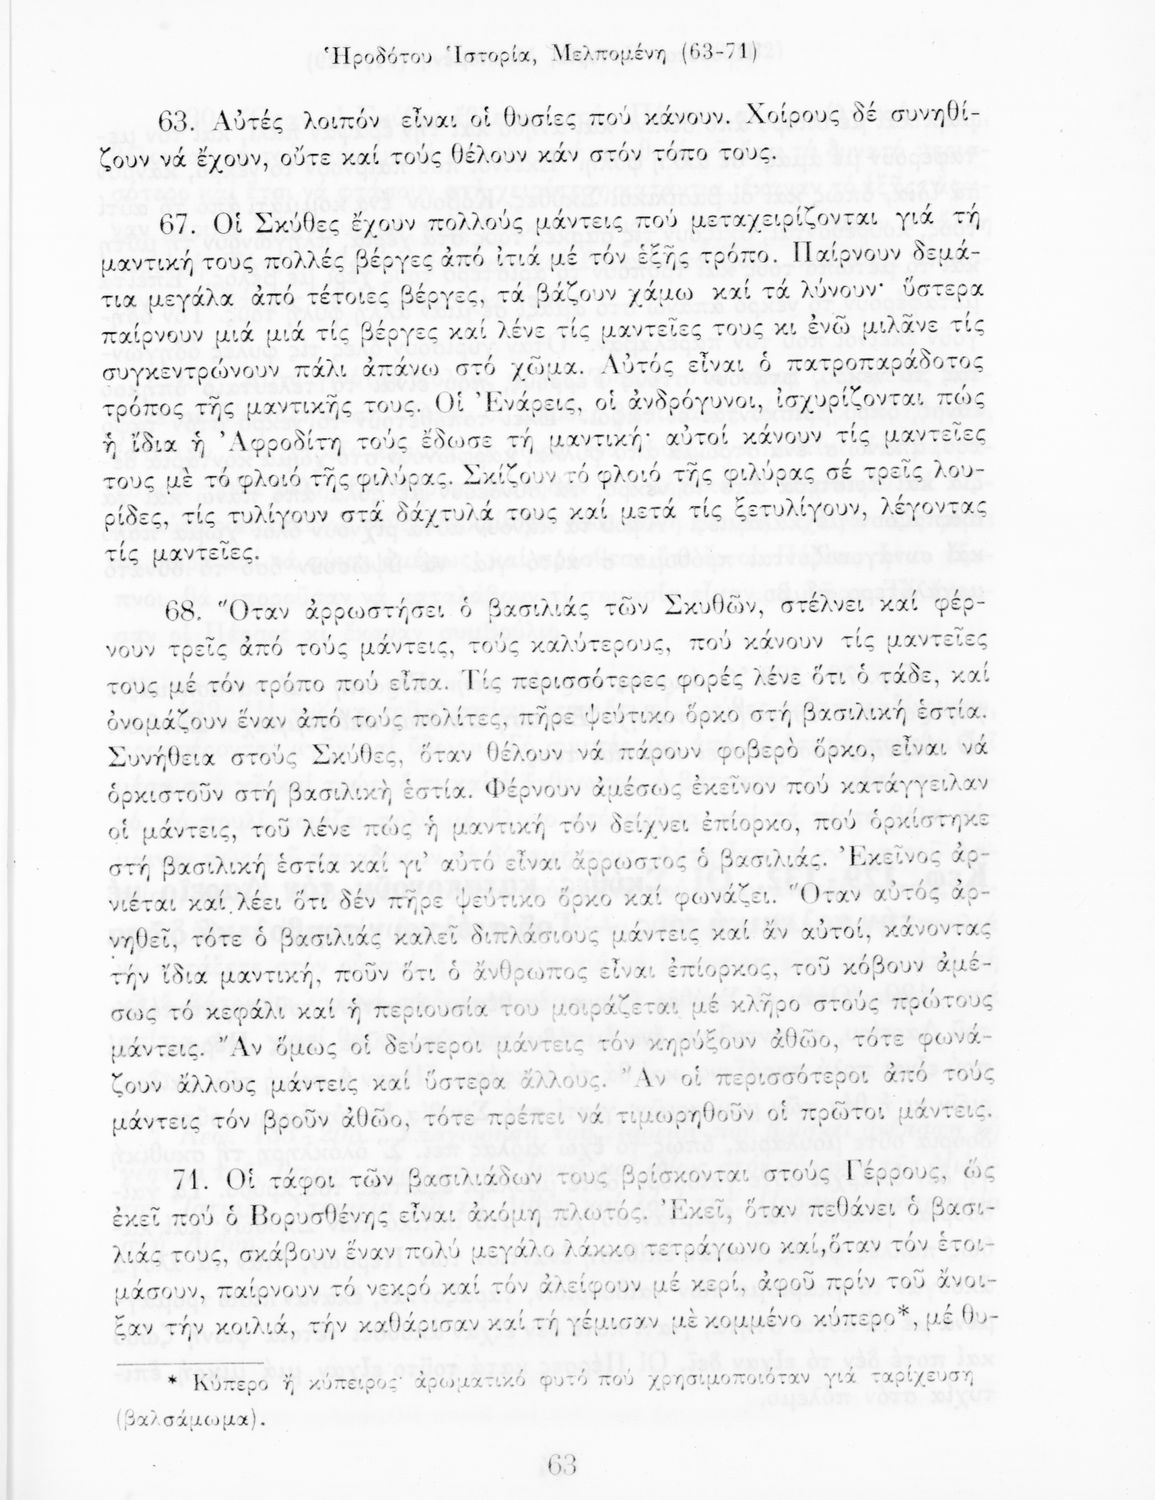 Ἡροδότου Ἱστορία, Μελπομένη (63-71)
63. Αὐτές λοιπόν εἶναι οἱ θυσίες πού κάνουν. Χοίρους δέ συνηθί-
ζουν νά ἔχουν, οὔτε καί τούς θέλουν κάν στόν τόπο τους.
67. Οἱ Σκύθες ἔχουν πολλούς μάντεις πού μεταχειρίζονται γιά τή
μαντική τους πολλές βέργες ἀπό ἰτιά μέ τόν ἑξῆς τρόπο. Παίρνουν δεμά-
τια μεγάλα ἀπό τέτοιες βέργες, τά βάζουν χάμω καί τά λύνουν· ὕστερα
παίρνουν μιά μιά τίς βέργες καί λένε τίς μαντεῖες τους κι ἐνῶ μιλᾶνε τίς
συγκεντρώνουν πάλι ἀπάνω στό χῶμα. Αὐτός εἶναι ὁ πατροπαράδοτος
τρόπος τῆς μαντικῆς τους. Οἱ Ἐνάρεις, οἱ ἀνδρόγυνοι, ἰσχυρίζονται πώς
ἡ ἴδια ἡ Ἀφροδίτη τούς ἔδωσε τή μαντική· αὐτοί κάνουν τίς μαντεῖες
τους μὲ τό φλοιό τῆς φιλύρας. Σκίζουν τό φλοιό τῆς φιλύρας σέ τρεῖς λου-
ρίδες, τίς τυλίγουν στά δάχτυλά τους καί μετά τίς ξετυλίγουν, λέγοντας
τίς μαντεῖες.
68. Ὅταν ἀρρωστήσει ὁ βασιλιάς τῶν Σκυθῶν, στέλνει καί φέρ-
νουν τρεῖς ἀπό τούς μάντεις, τούς καλύτερους, πού κάνουν τίς μαντεῖες
τους μέ τόν τρόπο πού εἶπα. Τίς περισσότερες φορές λένε ὅτι ὁ τάδε, καί
ὀνομάζουν ἕναν ἀπό τούς πολίτες, πῆρε ψεύτικο ὅρκο στή βασιλική ἑστία.
Συνήθεια στούς Σκύθες, ὅταν θέλουν νά πάρουν φοβερὸ ὅρκο, εἶναι νά
ὁρκιστοῦν στή βασιλικὴ ἑστία. Φέρνουν ἀμέσως ἐκεῖνον πού κατάγγειλαν
οἱ μάντεις, τοῦ λένε πώς ἡ μαντική τόν δείχνει ἐπίορκο, πού ὁρκίστηκε
στή βασιλική ἑστία καί γι' αὐτό εἶναι ἄρρωστος ὁ βασιλιάς. Ἐκεῖνος ἀρ-
νιέται καί λέει ὅτι δέν πῆρε ψεύτικο ὅρκο καί φωνάζει. Ὅταν αὐτός ἀρ-
νηθεῖ, τότε ὁ βασιλιάς καλεῖ διπλάσιους μάντεις καί ἄν αὐτοί, κάνοντας
τήν ἴδια μαντική, ποῦν ὅτι ὁ ἄνθρωπος εἶναι ἐπίορκος, τοῦ κόβουν ἀμέ-
σως τό κεφάλι καί ἡ περιουσία του μοιράζεται μέ κλῆρο στούς πρώτους
μάντεις. Ἄν ὅμως οἱ δεύτεροι μάντεις τόν κηρύξουν ἀθῶο, τότε φωνά-
ζουν ἄλλους μάντεις καί ὕστερα ἄλλους. Ἄν οἱ περισσότεροι ἀπό τούς
μάντεις τόν βροῦν ἀθῶο, τότε πρέπει νά τιμωρηθοῦν οἱ πρῶτοι μάντεις.
71. Οἱ τάφοι τῶν βασιλιάδων τους βρίσκονται στούς Γέρρους, ὥς
ἐκεῖ πού ὁ Βορυσθένης εἶναι ἀκόμη πλωτός. Ἐκεῖ, ὅταν πεθάνει ὁ βασι-
λιάς τους, σκάβουν ἕναν πολύ μεγάλο λάκκο τετράγωνο καί, ὅταν τόν ἑτοι-
μάσουν, παίρνουν τό νεκρό καί τόν ἀλείφουν μέ κερί, ἀφοῦ πρίν τοῦ ἄνοι-
ξαν τήν κοιλιά, τήν καθάρισαν καί τή γέμισαν μὲ κομμένο κύπερο*, μέ θυ-
* Κύπερο ἤ κύπειρος· ἀρωματικό φυτό πού χρησιμοποιόταν γιά ταρίχευση
(βαλσάμωμα).
63